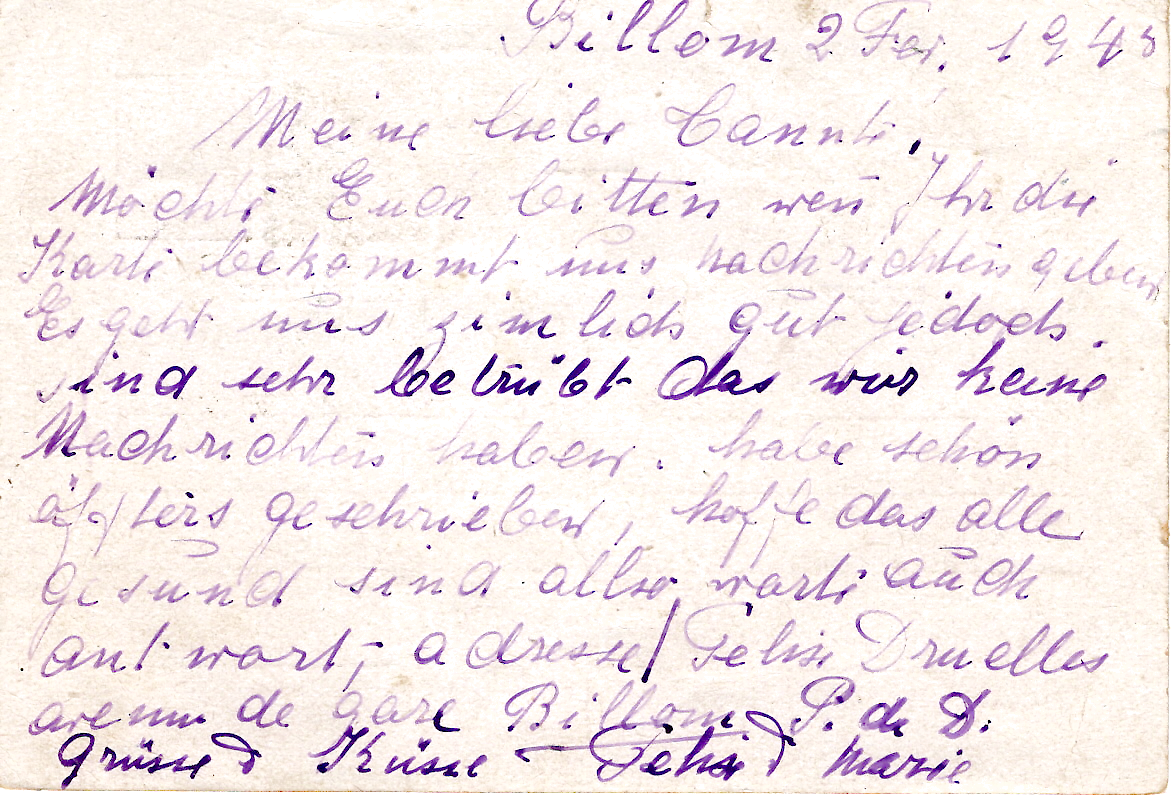 Billom 2 Fer. 1943
Meine liebe Tannte!
Möchte Euch bitten wen Ihr die
Karte bekommt uns nachrichten geben
Es geht uns zimlich gut jedoch.
sind sehr betrübt das wir keine
Nachrichten haben. habe schön
öffters geschrieben, hoffe das alle
gesund sind allso warte auch
antwort, - adresse / Felix Druelles
avenu de gare Billom P. de D.
Grüsse d Küsse - Felix d Marie